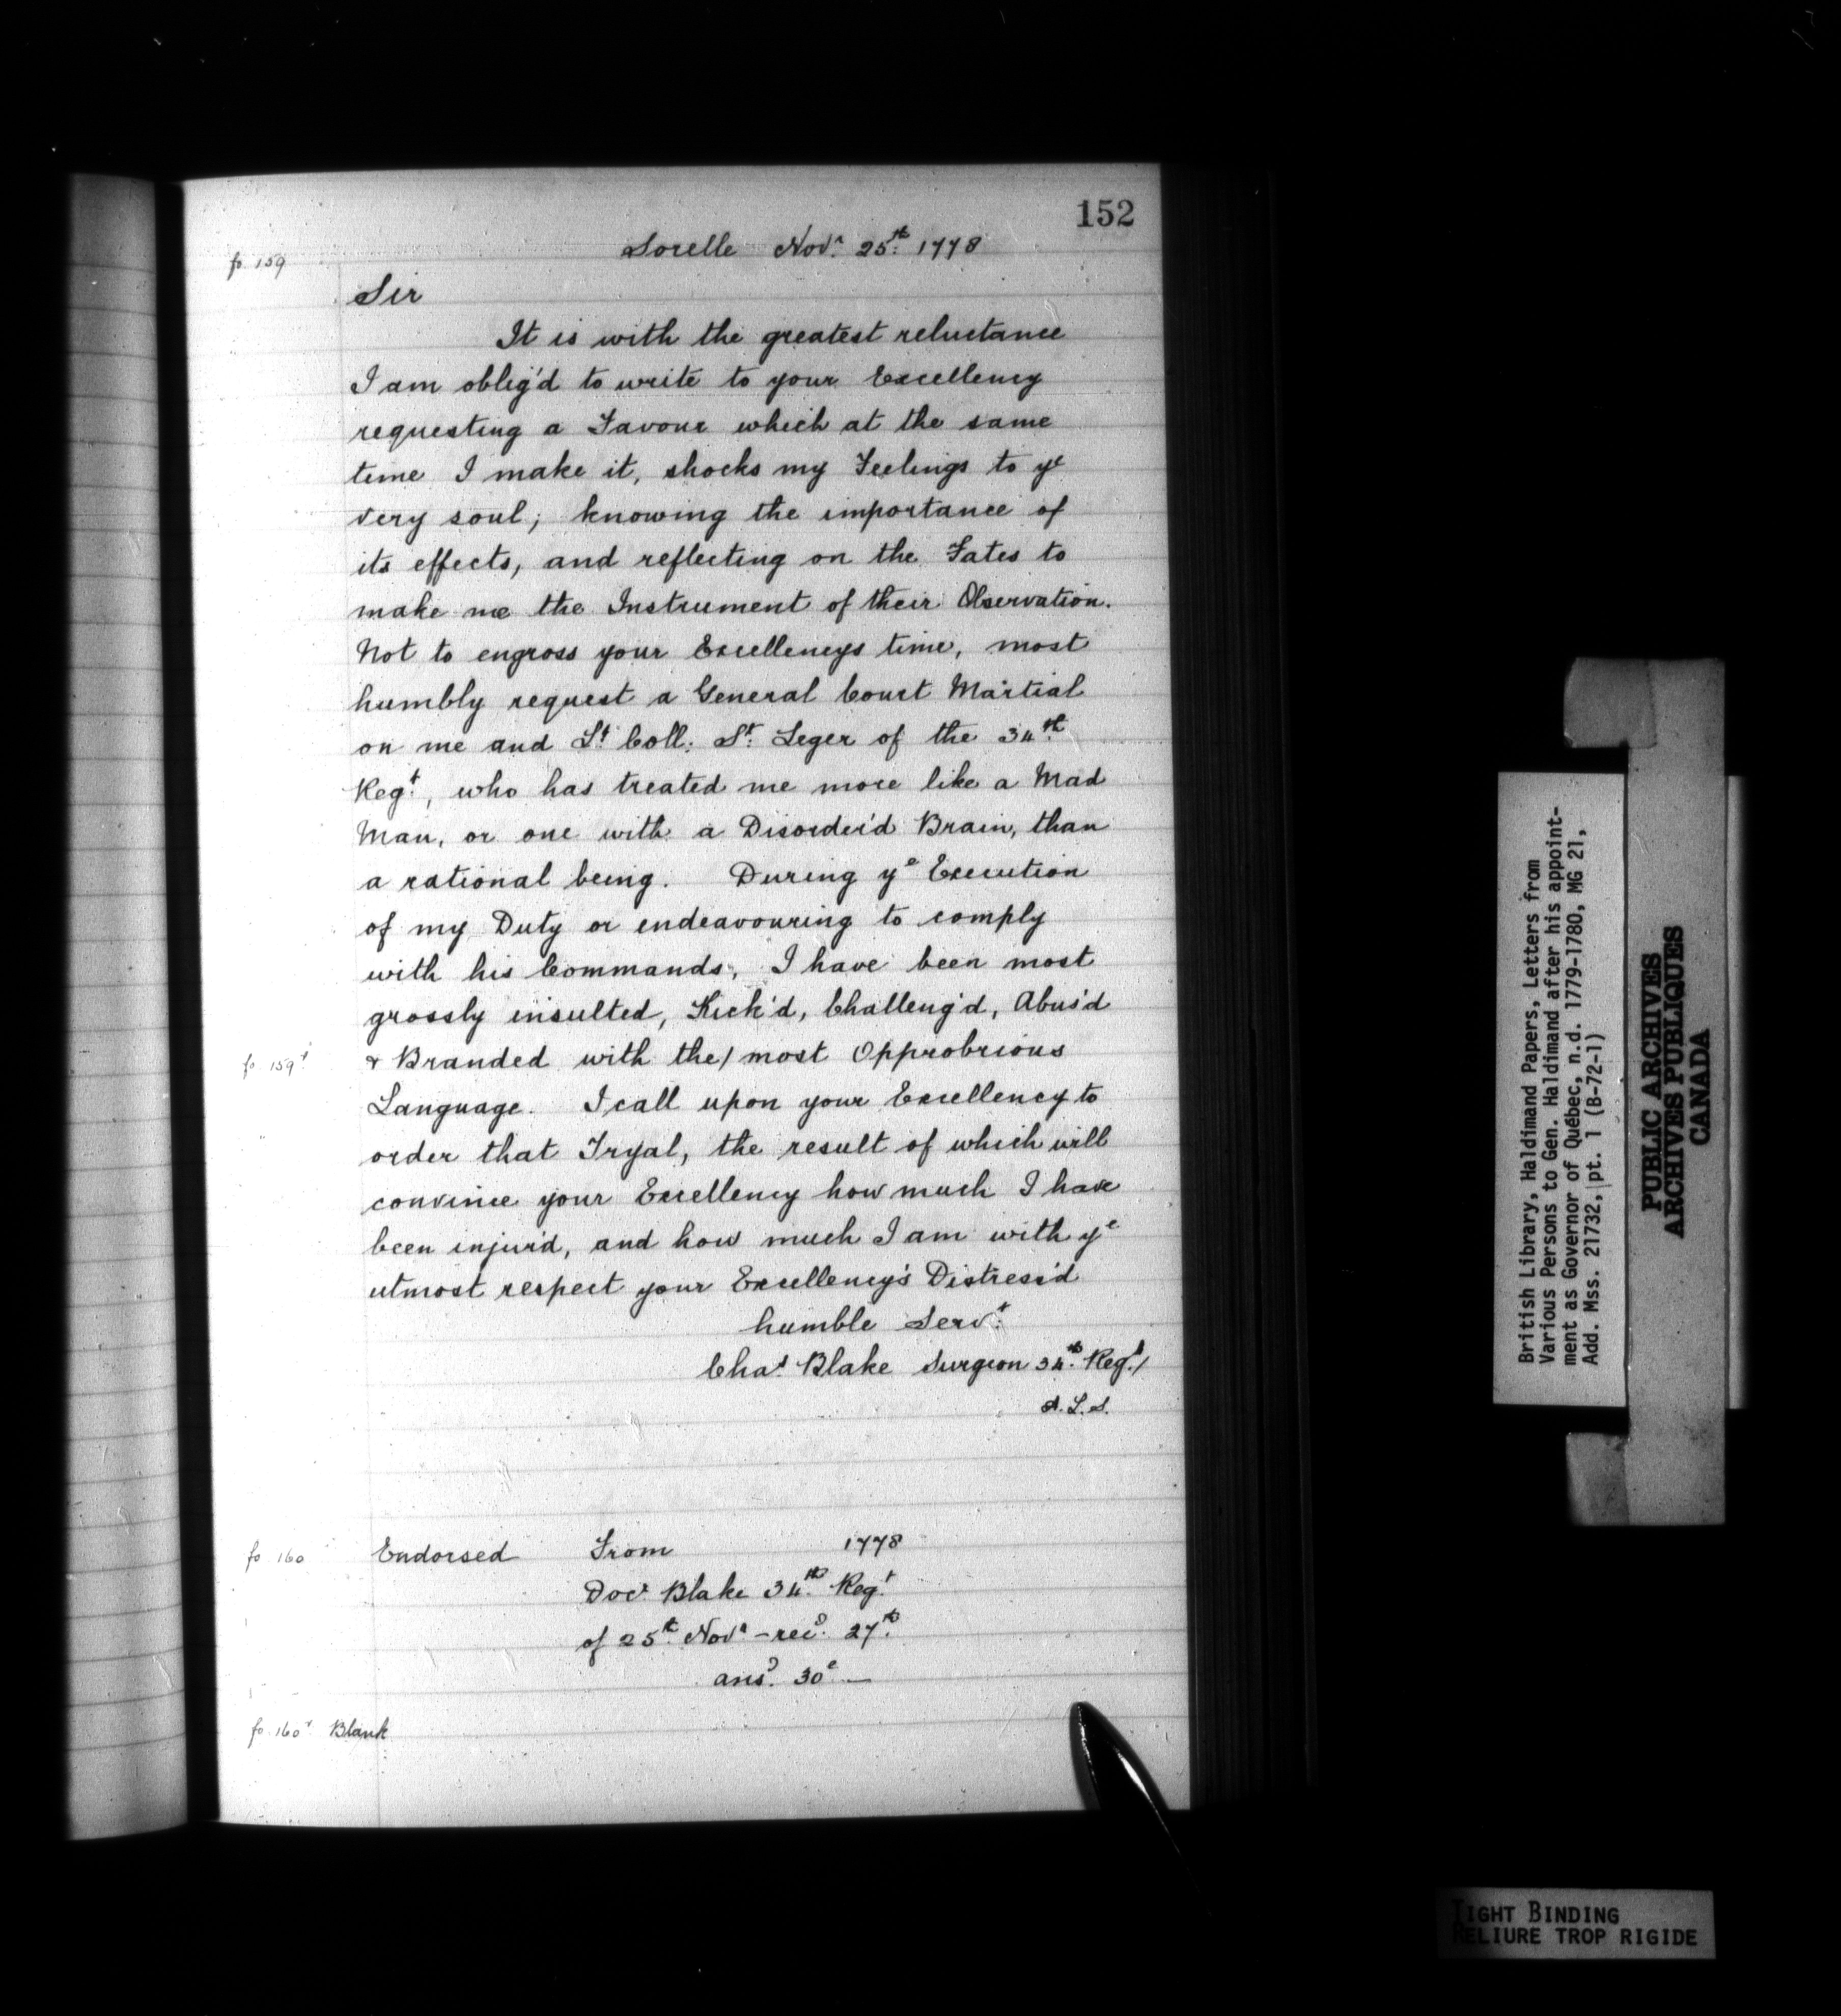 152
fo. 159
Sorelle Novr. 25th. 1778
Sir
It is with the greatest reluctance
I am oblig'd to write to your Excellency
requesting a Favour which at the same
time I make it, shocks my Feelings to ye
very soul; knowing the importance of
its effects, and reflecting on the Fates to
make me the Instrument of their Observation.
Not to engross your Excellencys time, most
humbly request a General Court Martial
on me and Lt. Coll: St. Leger of the 34th.
Regt., who has treated me more like a Mad
Man, or one with a Disorder'd Brain, than
a rational being. During ye Execution
of my Duty or endeavouring to comply
with his Commands, I have been most
grossly insulted, Kick'd, Challeng'd, Abus'd
fo 159v
& Branded with the/ most Opprobrious
Language. I call upon your Excellency to
order that Tryal, the result of which will
convince your Excellency how much I have
been injur'd, and how much I am with ye
utmost respect your Excellency's Distress'd
humble Servt.
Chas. Blake Surgeon 34th. Regt./
A.L.S.
fo 160
Endorsed From 1778
Docr. Blake 34th. Regt.
of 25th. Novr - recd. 27th.
ansd. 30e —
fo. 160v Blank
British Library, Haldimand Papers, Letters from
Various Persons to Gen. Haldimand after his appoint-
ment as Governor of Québec, n.d. 1779-1780, MG 21,
Add. Mss. 21732, pt. 1 (B-72-1)
PUBLIC ARCHIVES
ARCHIVES PUBLIQUES
CANADA
TIGHT BINDING
RELIURE TROP RIGIDE